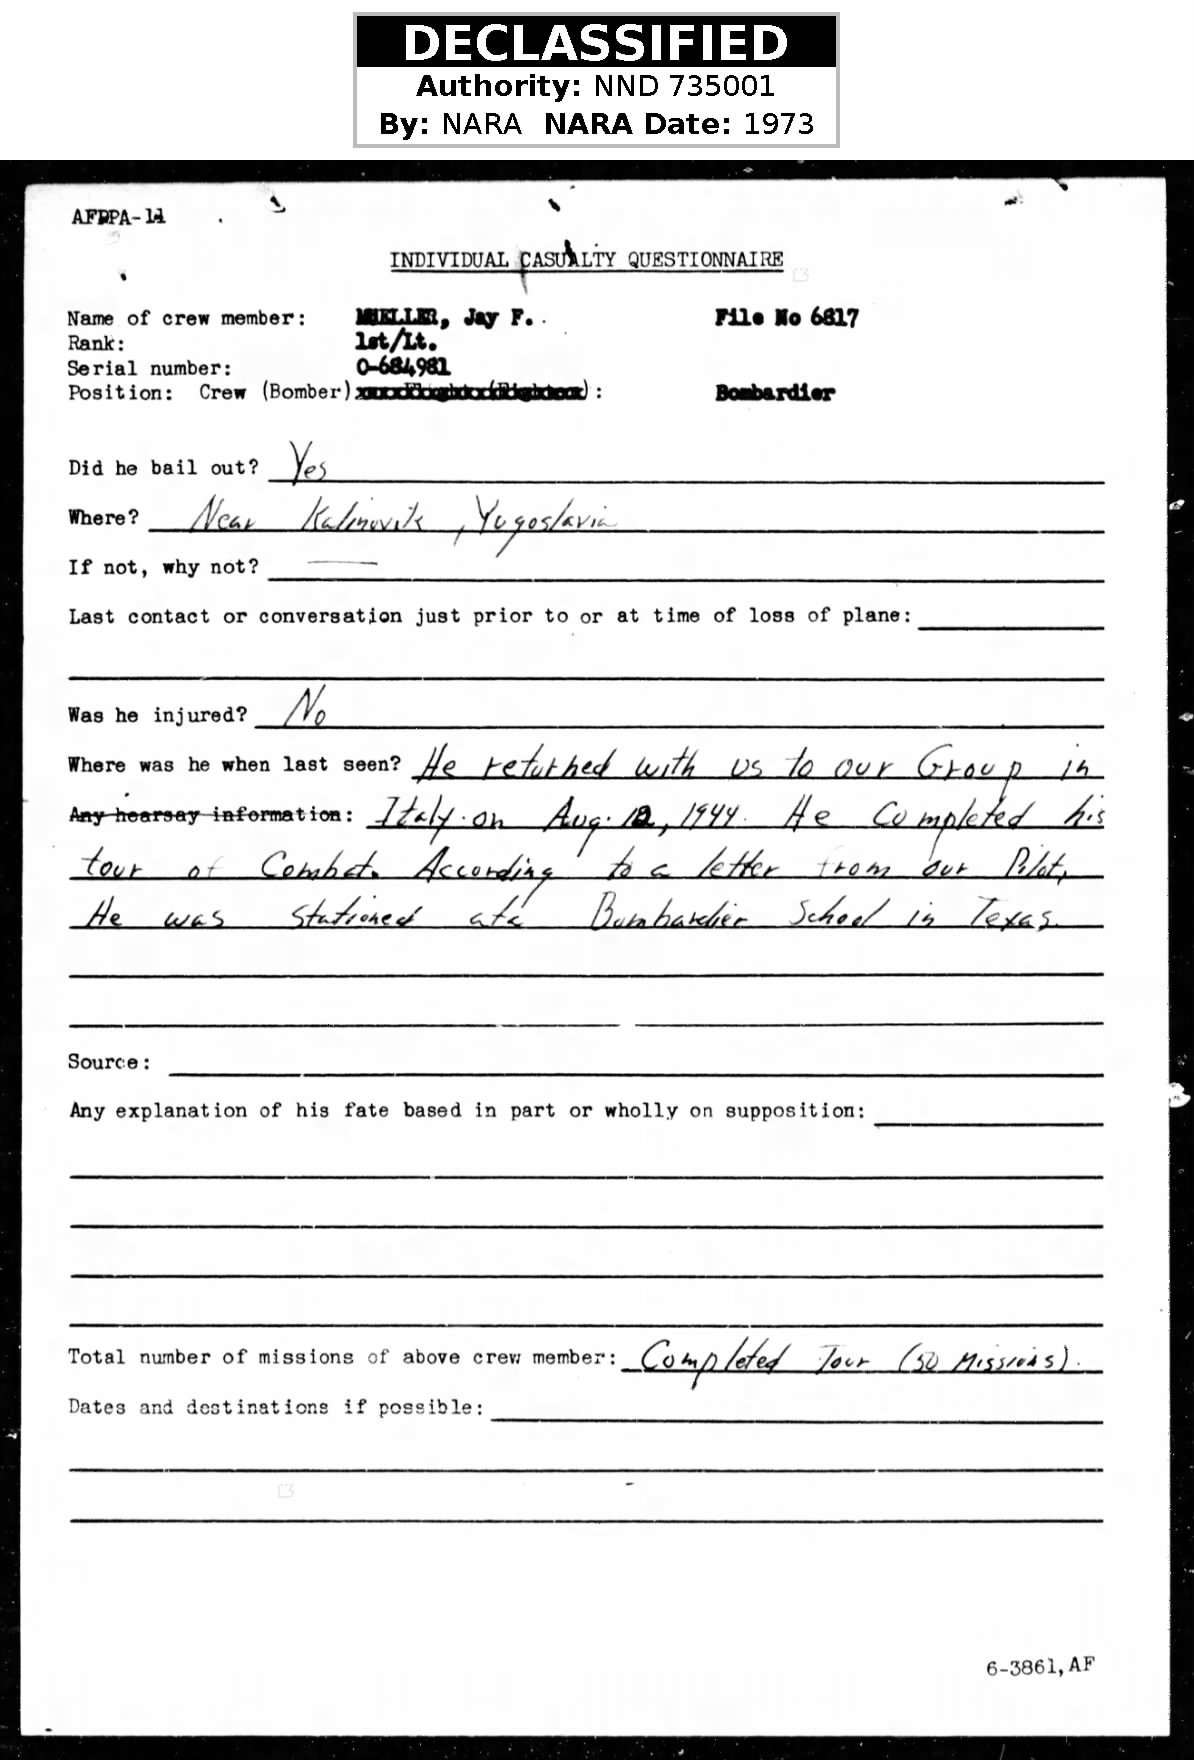 DECLASSIFIED
Authority: NND 735001
By: NARA NARA Date: 1973
AFPPA-11
INDIVIDUAL CASUALTY QUESTIONNAIRE
Name of crew member: MUELLER, Jay F. File No 6817
Rank: 1st/Lt.
Serial number: O-684981
Position: Crew (Bomber) : Bombardier
Did he bail out? Yes
Where? Near Kalinovik, Yugoslavia
If not, why not? —
Last contact or conversation just prior to or at time of loss of plane:
Was he injured? No
Where was he when last seen? He returned with us to our Group in
Any hearsay information: Italy on Aug. 12, 1944. He Completed his
tour of Combat. According to a letter from our Pilot,
He was stationed at a Bombardier School in Texas.
Source:
Any explanation of his fate based in part or wholly on supposition:
Total number of missions of above crew member: Completed Tour (50 Missions).
Dates and destinations if possible:
6-3861,AF